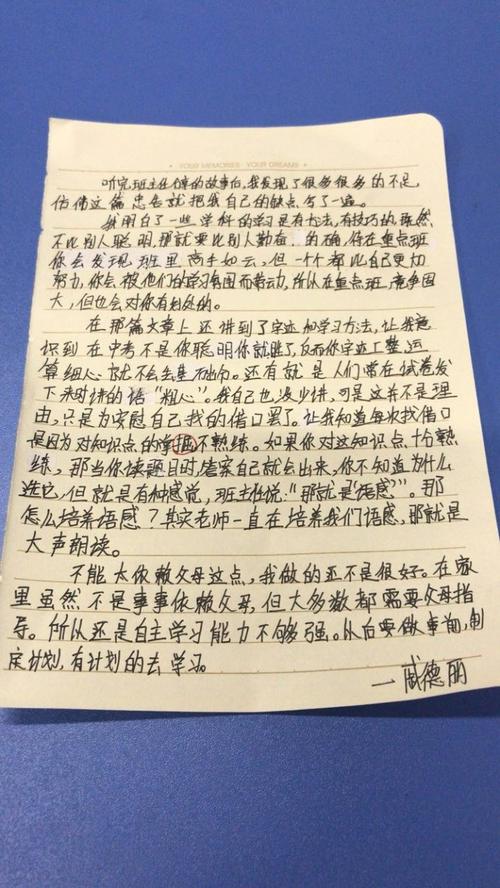 YOUR MEMORIES · YOUR DREAMS
听完班主任的故事后,我发现了很多很多的不足,
仿佛这篇忠告就把我自己的缺点写了一遍。
我明白了一些学科的学习是有方法,有技巧的,既然
不比别人聪明,那就要比别人勤奋。的确,待在重点班
你会发现班里高手如云,但一个个都比自己更努
力,你会被他们的学习氛围而带动,所以在重点班竞争
大,但也会对你有好处的。
在那篇文章上还讲到了字迹和学习方法,让我意
识到在中考不是你聪明你就胜了,反而你字迹工整,运
算细心
还有就是人们常在试卷发
下来时讲的话“粗心”。我自己也没少讲,可是这并不是理
由,只是为安慰自己找的借口罢了。让我知道每次找借口
是因为对知识点的掌握不熟练。如果你对这知识点十分熟
练,那当你读题目时,答案自己就会出来,你不知道为什么
选它,但就是有种感觉,班主任说:“那就是‘语感’”。那
怎么培养语感?其实老师一直在培养我们语感,那就是
大声朗读。
不能太依赖父母这点,我做的还不是很好。在家
里虽然不是事事依赖父母,但大多数都需要父母指
导。所以还是自主学习能力不够强。从后要做事前,制
定计划,有计划的去学习。
—戚德丽